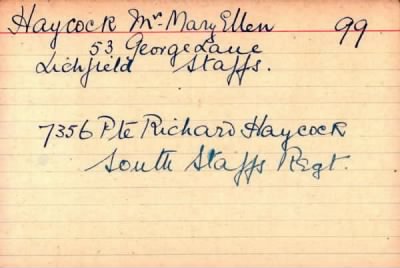 Haycock Mrs. Mary Ellen 99
53 George Lane
Lichfield Staffs.
7356 Pte Richard Haycock
South Staffs Regt.